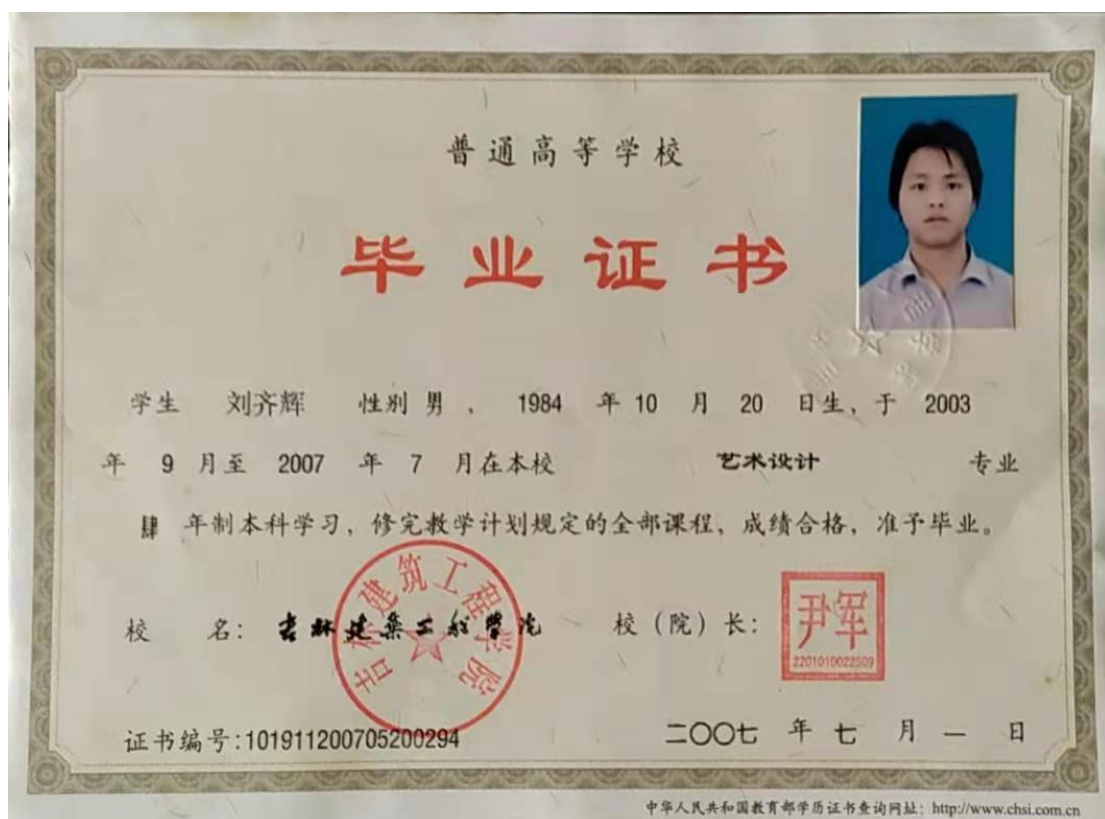 普通高等学校
毕业证书
学生 刘齐辉 性别 男 , 1984 年 10 月 20 日生, 于 2003
年 9 月至 2007 年 7 月在本校 艺术设计 专业
肆 年制本科学习, 修完教学计划规定的全部课程, 成绩合格, 准予毕业。
校 名: 吉林建筑工程学院 校(院)长: 尹军
吉林建筑工程学院
2201010022509
证书编号:101911200705200294 二〇〇七 年 七 月 一 日
中华人民共和国教育部学历证书查询网址: http://www.chsi.com.cn